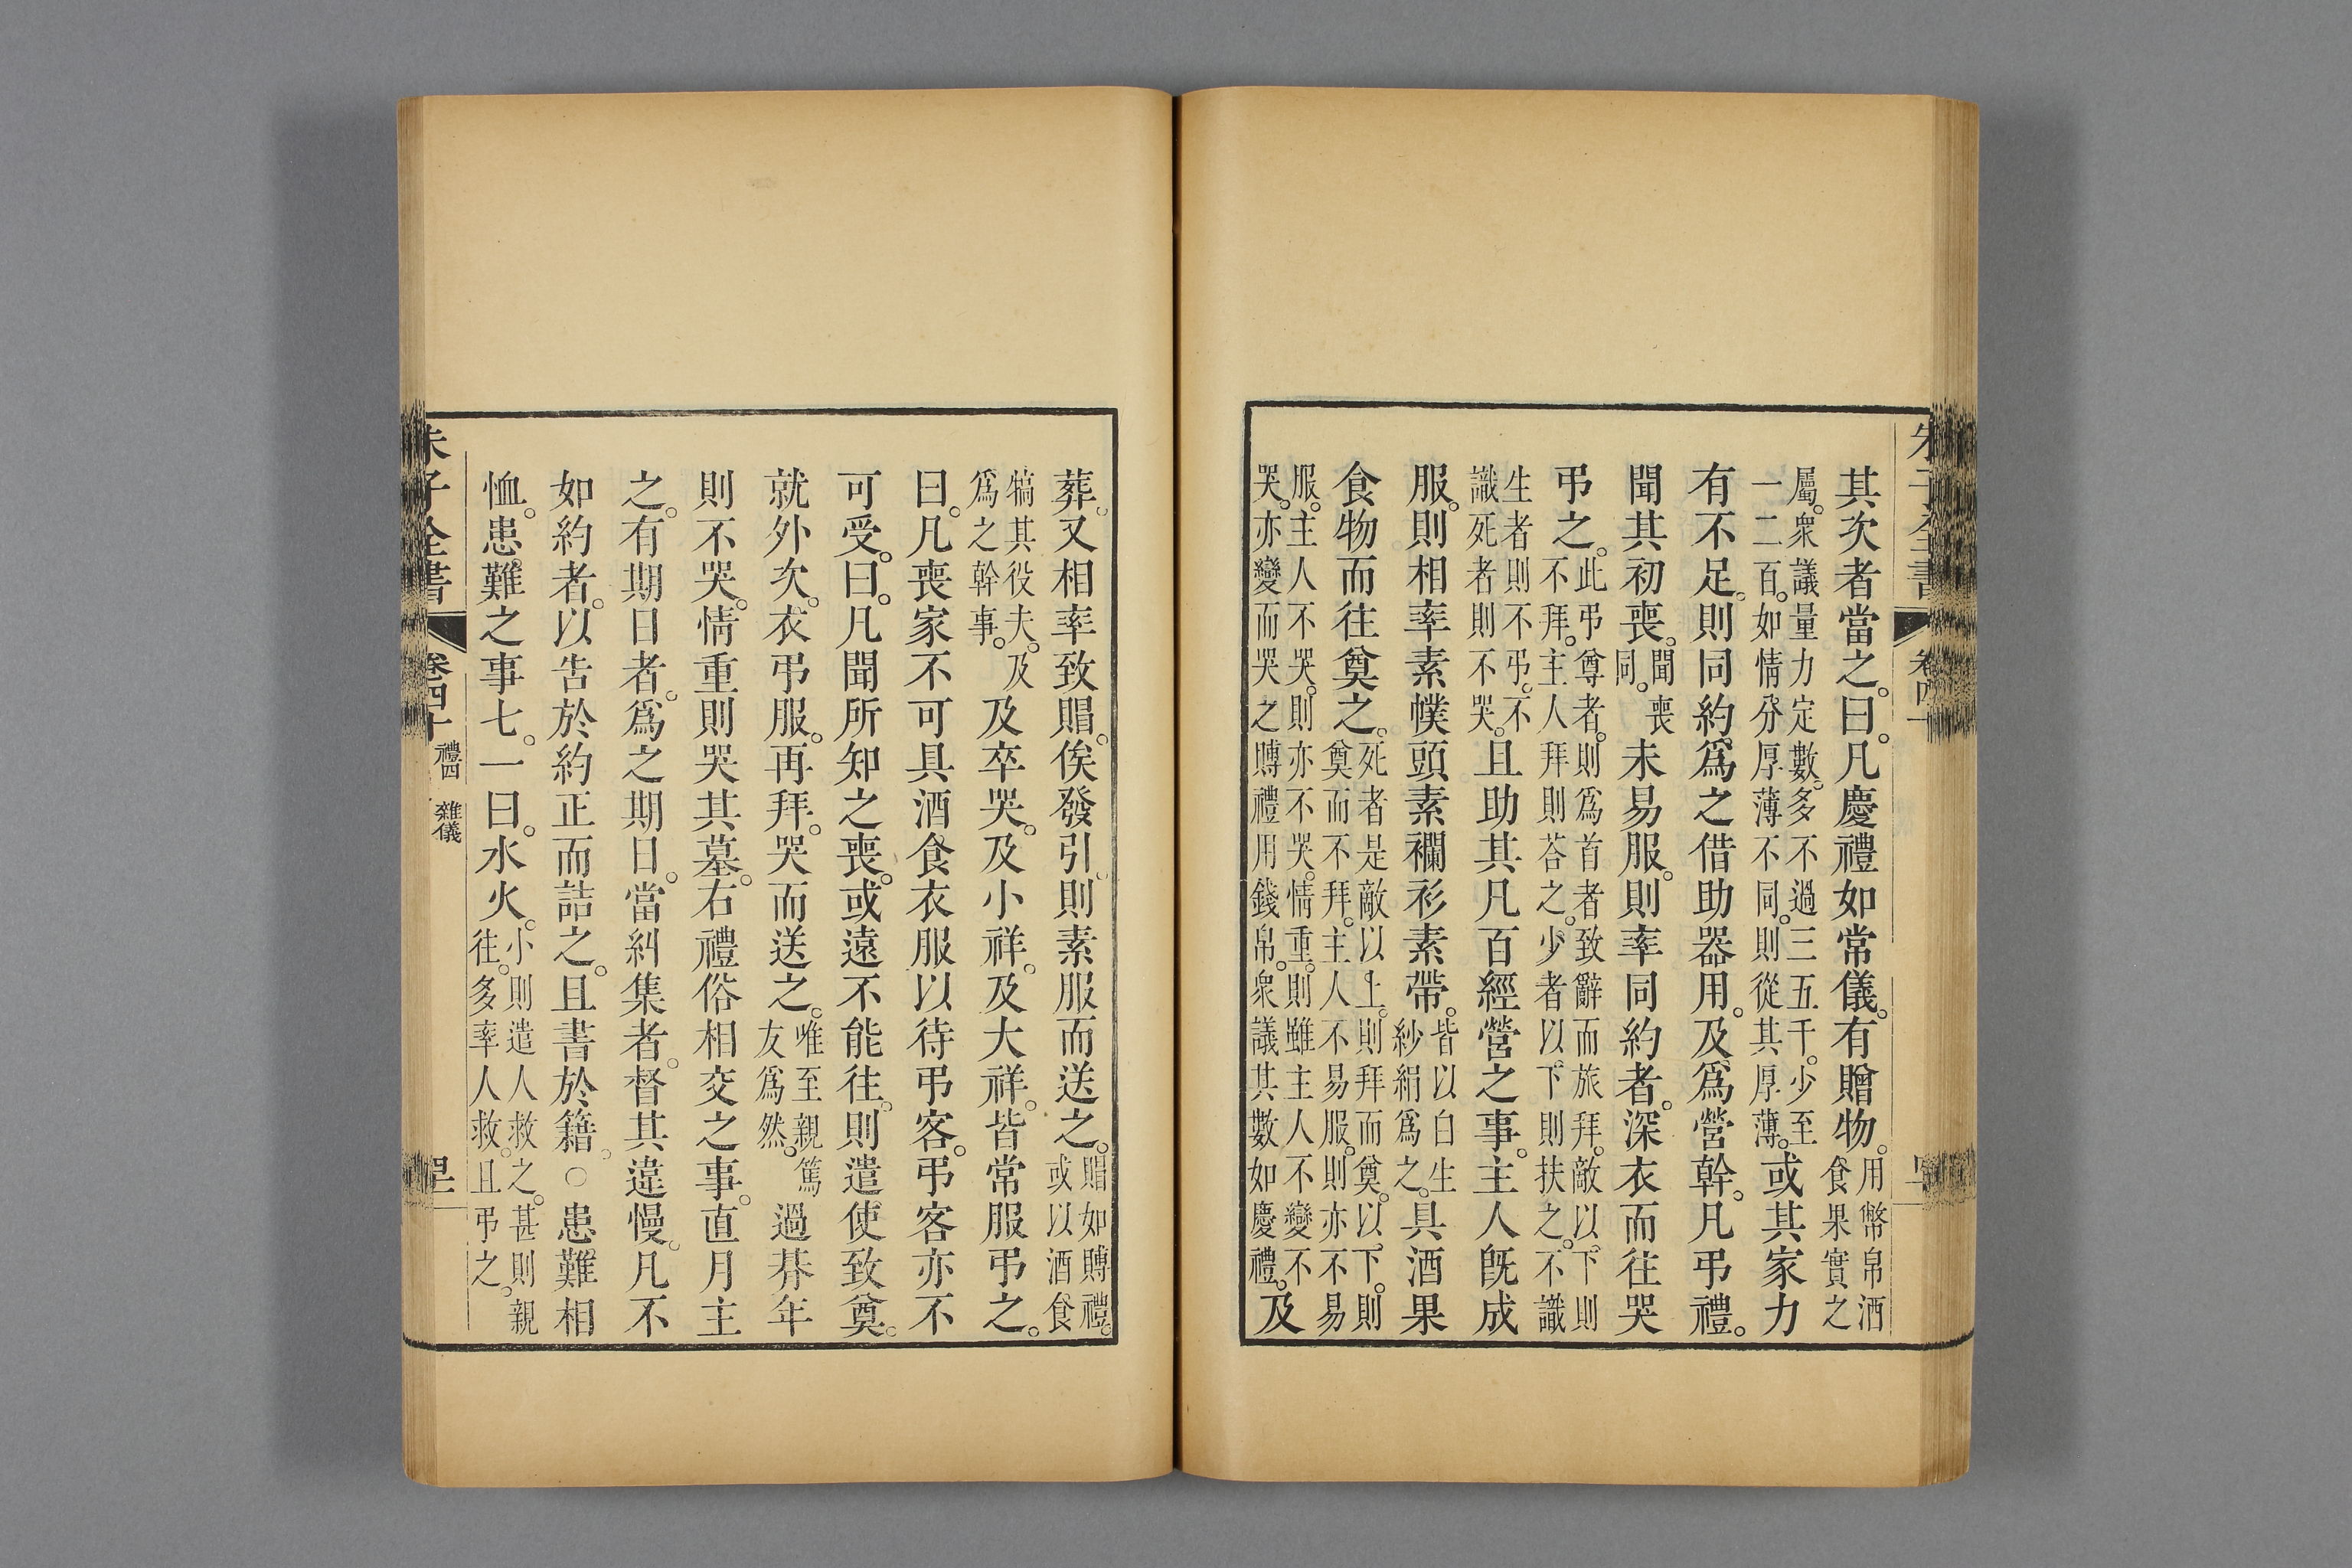 其次者當之。曰。凡慶禮如常儀。有贈物。用幣帛酒食果實之
屬。衆議量力定數。多不過三五千。少至一二百。如情分厚薄不同。則從其厚薄。或其家力
有不足。則同約爲之借助器用。及爲營幹。凡弔禮。
聞其初喪。聞喪同。未易服。則率同約者。深衣而往哭
弔之。此弔尊者。則爲首者致辭而旅拜。敵以下則不拜。主人拜則荅之。少者以下則扶之。不識
生者則不弔。不識死者則不哭。且助其凡百經營之事。主人旣成
服。則相率素幞頭素襴衫素帶。皆以白生紗絹爲之。具酒果
食物而往奠之。死者是敵以上。則拜而奠。以下。則奠而不拜。主人不易服。則亦不易
服。主人不哭。則亦不哭。情重。則雖主人不變不哭。亦變而哭之賻禮用錢帛。衆議其數如慶禮。及
葬。又相率致賵。俟發引。則素服而送之。賵如賻禮。或以酒食
犒其役夫。及爲之幹事。及卒哭。及小祥。及大祥。皆常服弔之。
曰。凡喪家不可具酒食衣服以待弔客。弔客亦不
可受。曰。凡聞所知之喪。或遠不能往。則遣使致奠。
就外次。衣弔服。再拜。哭而送之。唯至親篤友爲然。過朞年
則不哭。情重則哭其墓。右禮俗相交之事。直月主
之。有期日者。爲之期日。當糾集者。督其違慢。凡不
如約者。以告於約正而詰之。且書於籍。○患難相
恤。患難之事七。一曰。水火。小則遣人救之。甚則親往。多率人救。且弔之。
朱子全書 卷四十 禮四 雜儀